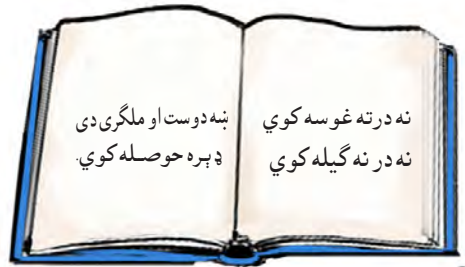 نه درته غوسه کوي
نه در نه گیله کوي
ښه دوست او ملگری دی
ډېره حوصله کوي.